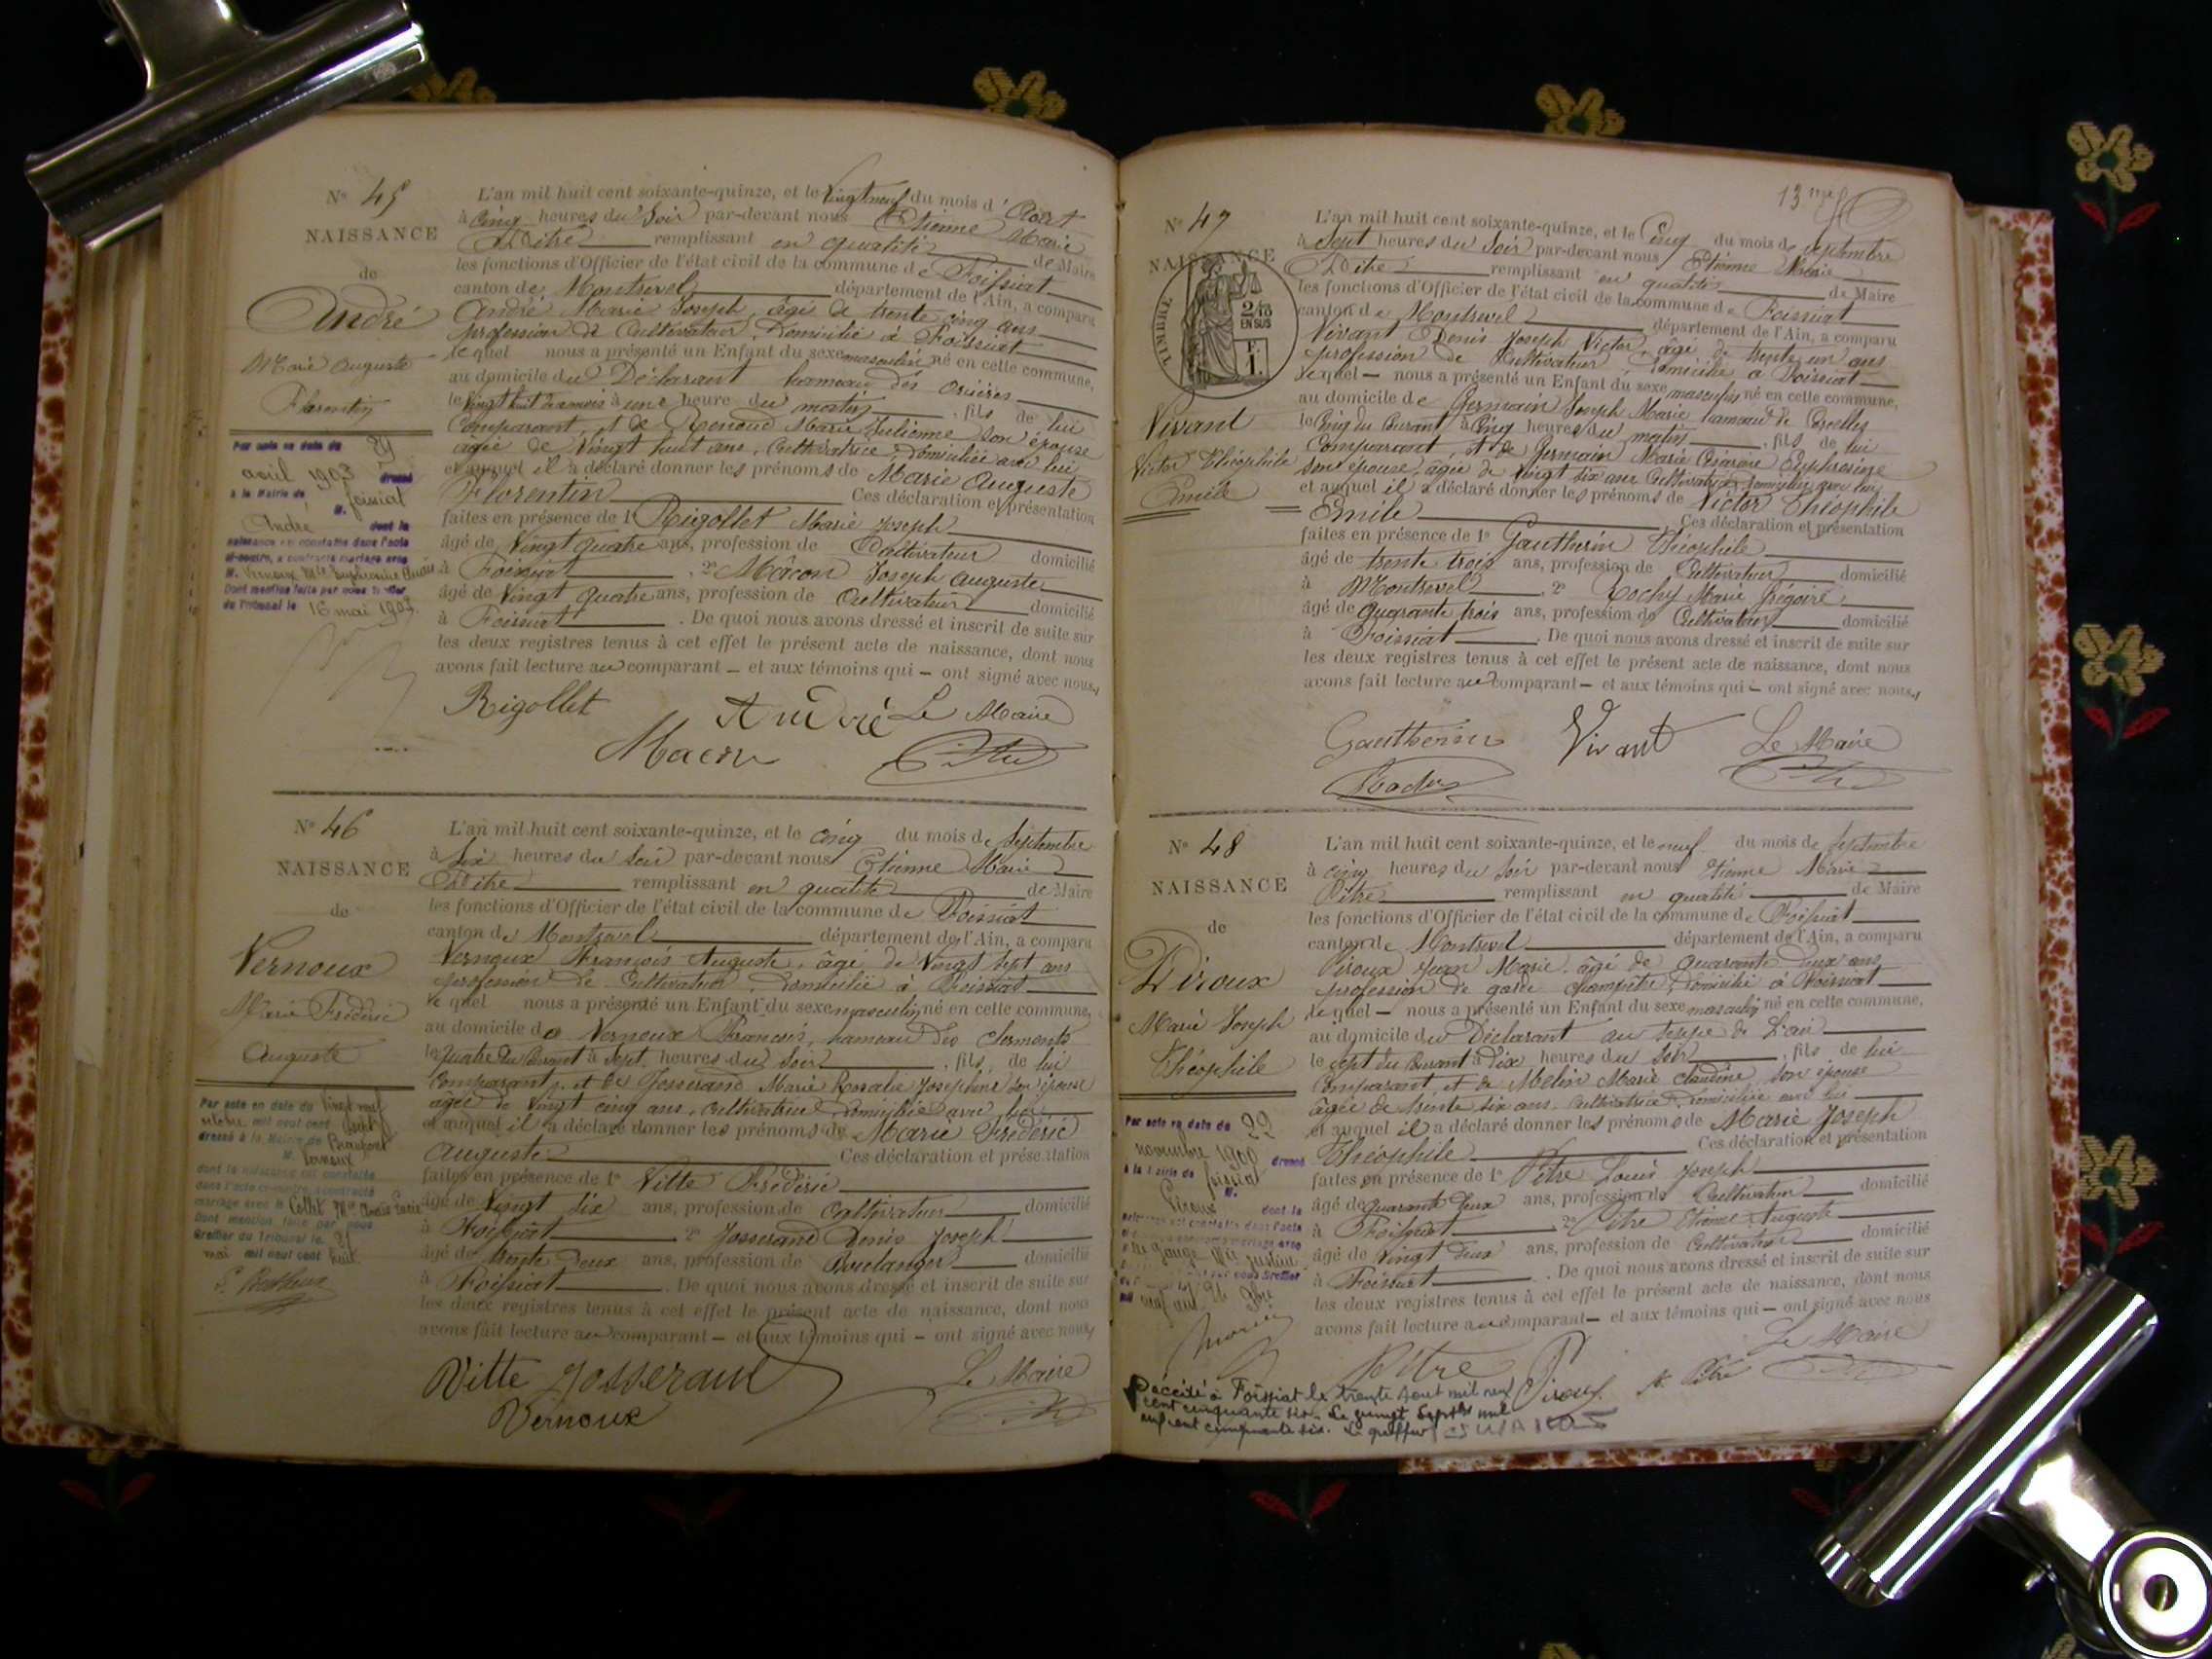 N° 45
NAISSANCE
de
André
Marie Auguste
Florentin
Par acte en date du 29
avril 1903 dressé
à la Mairie de foissiat
M.
André dont la
naissance est constatée dans l'acte
ci-contre, a contracté mariage avec
M. Vernoux Mie Euphrasine
Dont mention faite par nous Greffier
du Tribunal le 16 mai 1903.
L'an mil huit cent soixante-quinze, et le Vingt neuf du mois d'Août
à Cinq heures du Soir par-devant nous Etienne Marie
Pitre remplissant en qualité de Maire
les fonctions d'Officier de l'état civil de la commune de Foissiat
canton de Montrevel département de l'Ain, a comparu
André Marie Joseph, âgé de trente cinq ans
profession de Cultivateur, domicilié à Foissiat
lequel nous a présenté un Enfant du sexe masculin né en cette commune,
au domicile du Déclarant hameau des
le Vingt huit du mois à une heure du matin, fils de lui
Comparant, et de Renoud Marie Julienne son épouse
âgée de Vingt huit ans, Cultivatrice, domiciliée avec lui
et auquel il a déclaré donner les prénoms de Marie Auguste
Florentin Ces déclaration et présentation
faites en présence de 1° Rigollet Marie Joseph
âgé de Vingt quatre ans, profession de Cultivateur domicilié
à Foissiat, 2° Mâcon Joseph Auguste
âgé de Vingt quatre ans, profession de Cultivateur domicilié
à Foissiat. De quoi nous avons dressé et inscrit de suite sur
les deux registres tenus à cet effet le présent acte de naissance, dont nous
avons fait lecture au comparant – et aux témoins qui – ont signé avec nous.
Rigollet André Le Maire
Macon Pitre
N° 46
NAISSANCE
de
Vernoux
Marie Frédéric
Auguste
Par acte en date du vingt neuf
octobre mil neuf cent sept
dressé à la Mairie de Beaupont
M. Vernoux
dont la naissance est constatée
dans l'acte ci-contre, a contracté
mariage avec M Collet Mie
Dont mention faite par nous
Greffier du Tribunal le 21
mai mil neuf cent huit
L'an mil huit cent soixante-quinze, et le cinq du mois de Septembre
à Six heures du Soir par-devant nous Etienne Marie
Pitre remplissant en qualité de Maire
les fonctions d'Officier de l'état civil de la commune de Foissiat
canton de Montrevel département de l'Ain, a comparu
Vernoux François Auguste, âgé de Vingt sept ans
profession de Cultivateur, domicilié à Foissiat
lequel nous a présenté un Enfant du sexe masculin né en cette commune,
au domicile de Vernoux François, hameau des Clermonts
le quatre du Courant à Sept heures du Soir, fils de lui
Comparant, et de Josserand Marie Rosalie Joséphine son épouse
âgée de Vingt cinq ans, cultivatrice domiciliée avec lui
et auquel il a déclaré donner les prénoms de Marie Frédéric
Auguste Ces déclaration et présentation
faites en présence de 1° Vitte Frédéric
âgé de Vingt six ans, profession de Cultivateur domicilié
à Foissiat 2° Josserand Denis Joseph
âgé de trente deux ans, profession de Boulanger domicilié
à Foissiat. De quoi nous avons dressé et inscrit de suite sur
les deux registres tenus à cet effet le présent acte de naissance, dont nous
avons fait lecture au comparant – et aux témoins qui – ont signé avec nous,
Vitte Josserand Le Maire
Vernoux Pitre
13me
N° 47
NAISSANCE
TIMBRE
2/10
EN SUS
F.
1.
Vivant
Victor Théophile
Emile
L'an mil huit cent soixante-quinze, et le Cinq du mois de Septembre
à Sept heures du Soir par-devant nous Etienne Marie
Pitre remplissant en qualité de Maire
les fonctions d'Officier de l'état civil de la commune de Foissiat
canton de Montrevel département de l'Ain, a comparu
Vivant Denis Joseph Victor, âgé de trente un ans
profession de Cultivateur domicilié à Foissiat
lequel – nous a présenté un Enfant du sexe masculin né en cette commune,
au domicile de Germain Joseph Marie hameau de
le Cinq du Courant à Cinq heures du matin, fils de lui
Comparant, et de Germain Marie Euphrosine
son épouse, âgée de Vingt six ans Cultivatrice domiciliée avec lui
et auquel il a déclaré donner les prénoms de Victor Théophile
Emile Ces déclaration et présentation
faites en présence de 1° Gautherin Théophile
âgé de trente trois ans, profession de Cultivateur domicilié
à Montrevel, 2° Rochy Marie Grégoire
âgé de quarante trois ans, profession de Cultivateur domicilié
à Foissiat. De quoi nous avons dressé et inscrit de suite sur
les deux registres tenus à cet effet le présent acte de naissance, dont nous
avons fait lecture au comparant – et aux témoins qui – ont signé avec nous,
Gautherin Vivant Le Maire
N° 48
NAISSANCE
de
Piroux
Marie Joseph
Théophile
Par acte en date du 22
novembre 1900 dressé
à la Mairie de foissiat
M.
Piroux dont la
L'an mil huit cent soixante-quinze, et le neuf du mois de Septembre
à cinq heures du Soir par-devant nous Etienne Marie
Pitre remplissant en qualité de Maire
les fonctions d'Officier de l'état civil de la commune de Foissiat
canton de Montrevel département de l'Ain, a comparu
Piroux Jean Marie, âgé de quarante deux ans
profession de garde Champêtre, domicilié à Foissiat
lequel – nous a présenté un Enfant du sexe masculin né en cette commune,
au domicile du Déclarant au
le Sept du Courant à dix heures du Soir, fils de lui
Comparant et de Melin Marie Claudine son épouse
âgée de trente six ans, Cultivatrice domiciliée avec lui
et auquel il a déclaré donner les prénoms de Marie Joseph
Théophile Ces déclaration et présentation
faites en présence de 1° Pitre Louis Joseph
âgé de quarante deux ans, profession de Cultivateur domicilié
à Foissiat 2° Pitre Etienne Auguste
âgé de Vingt deux ans, profession de Cultivateur domicilié
à Foissiat. De quoi nous avons dressé et inscrit de suite sur
les deux registres tenus à cet effet le présent acte de naissance, dont nous
avons fait lecture au comparant – et aux témoins qui – ont signé avec nous
Le Maire
Pitre Piroux Pitre
Décédé à Foissiat le trente août mil neuf
cent cinquante six. Le vingt Septbre mil
neuf cent cinquante six. Le greffier